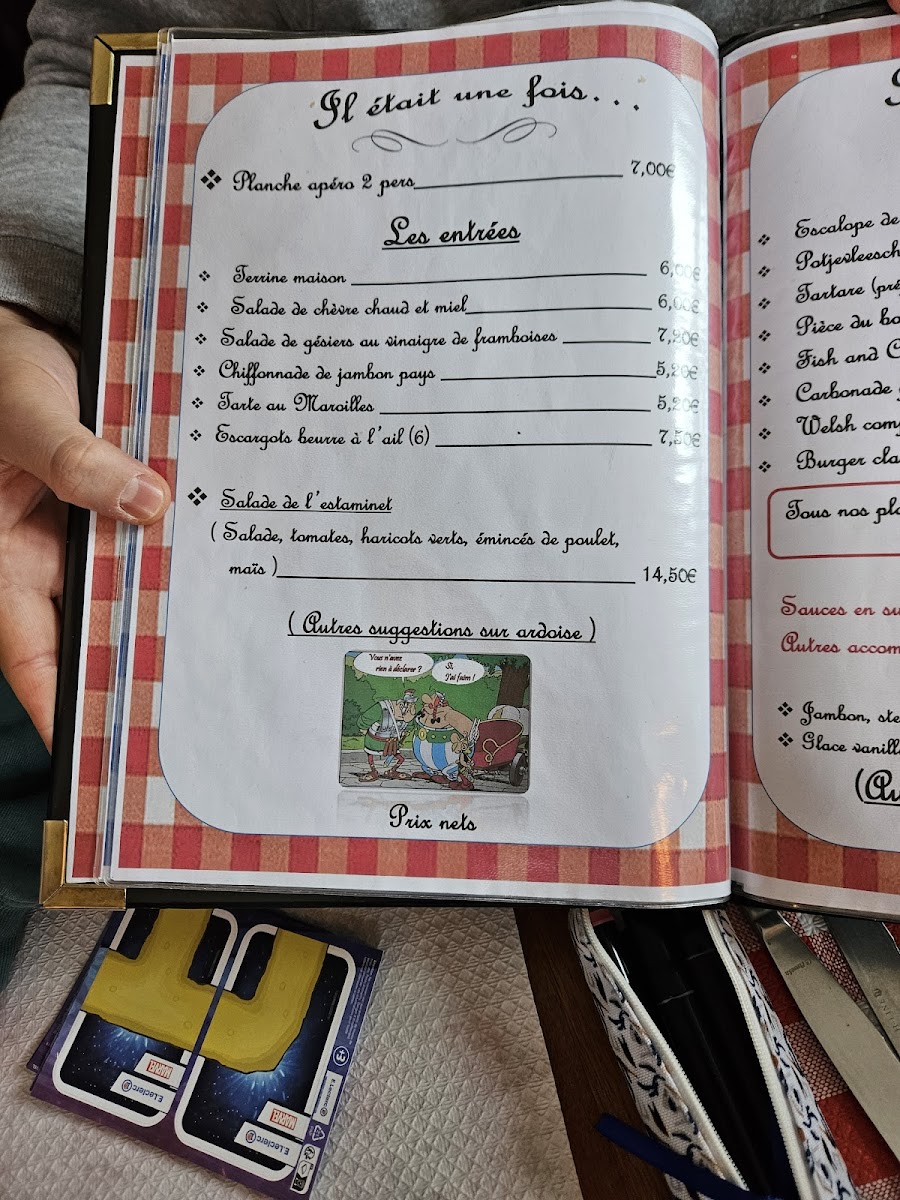 Il était une fois...
Planche apéro 2 pers 7,00€
Les entrées
Terrine maison 6,00€
Salade de chèvre chaud et miel 6,00€
Salade de gésiers au vinaigre de framboises 7,20€
Chiffonnade de jambon pays 5,20€
Tarte au Maroilles 5,20€
Escargots beurre à l'ail (6) 7,50€
Salade de l'estaminet
( Salade, tomates, haricots verts, émincés de poulet,
maïs ) 14,50€
( Autres suggestions sur ardoise )
Vous n'avez
rien à déclarer ?
Si,
J'ai faim !
Prix nets
Escalope de
Potjevleesch
Tartare (pré
Pièce du
Fish and C
Carbonade
Welsh com
Burger cla
Tous nos pla
Sauces en su
Autres accom
Jambon, ste
Glace vanill
(Au
MARVEL
E.Leclerc
MARVEL
E.Leclerc
E.Leclerc